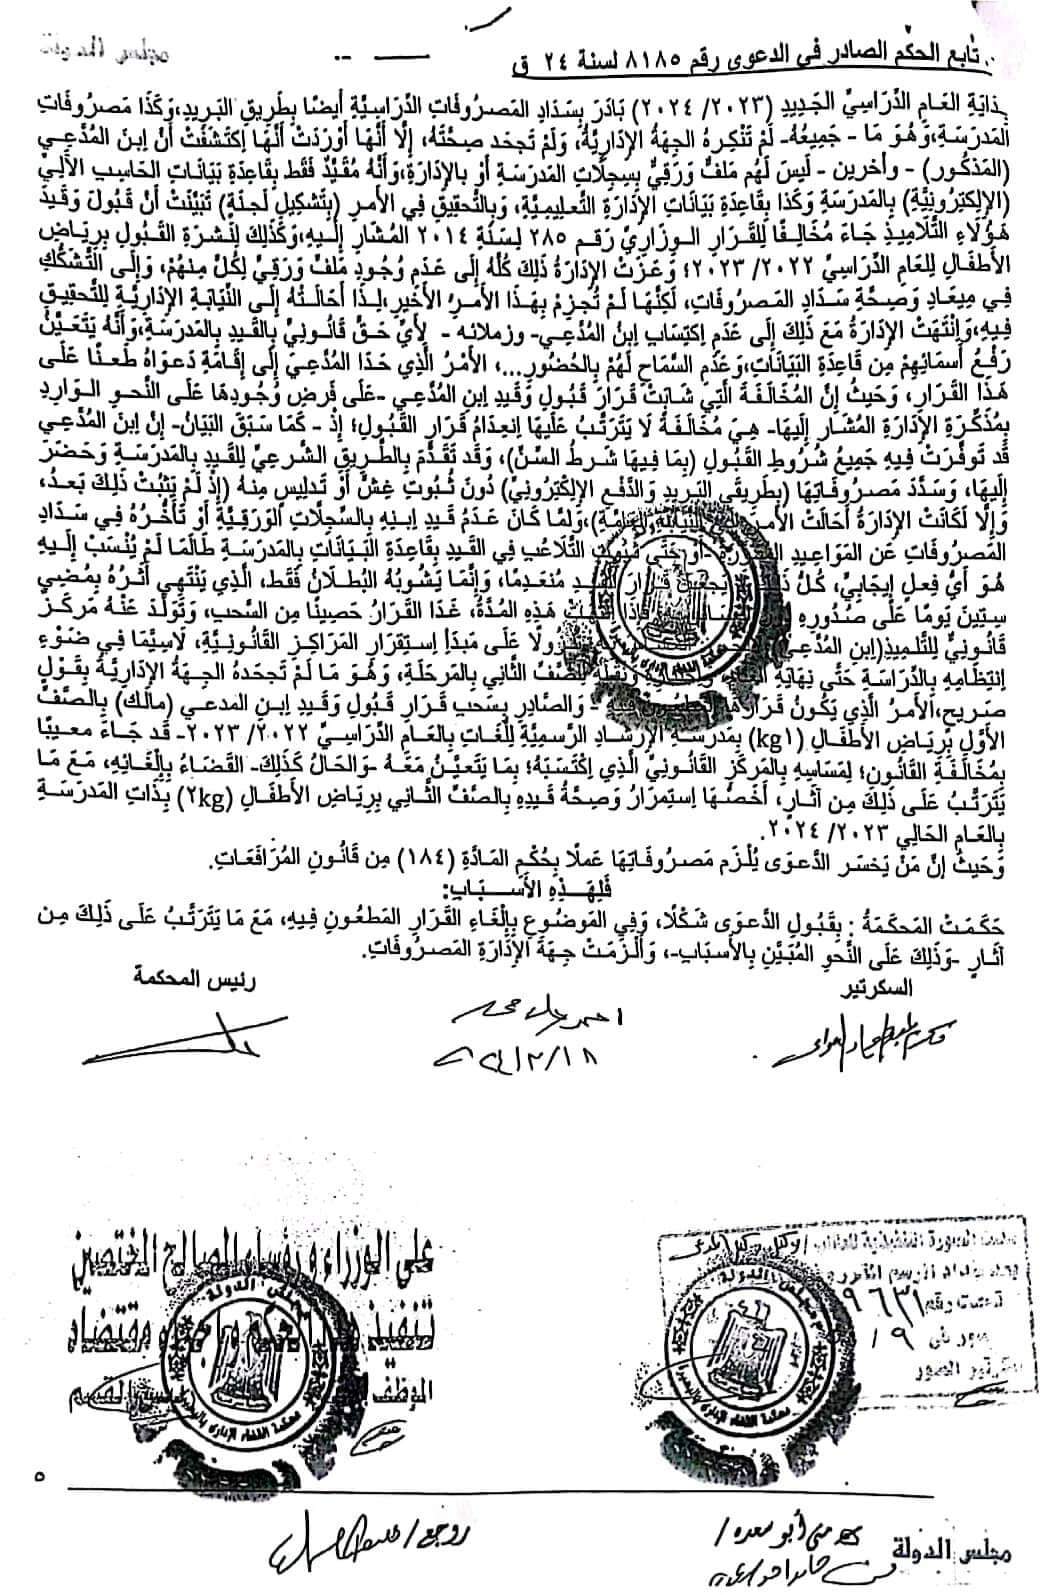 تابع الحكم الصادر في الدعوى رقم ٨١٨٥ لسنة ٢٤ ق
بِدَايَةِ العَامِ الدِّرَاسِيِّ الجَدِيدِ (٢٠٢٣/ ٢٠٢٤) بَادَرَ بِسَدَادِ المَصرُوفَاتِ الدِّرَاسِيَّةِ أَيضًا بِطَرِيقِ البَرِيدِ، وَكَذَا مَصرُوفَاتِ
المَدرَسَةِ، وَهُوَ مَا - جَمِيعُهُ- لَمْ تُنْكِرهُ الجِهَةُ الإِدَارِيَّةُ، وَلَمْ تَجحَد صِحَّتَهُ، إِلَّا أَنَّهَا أَوْرَدَتْ أَنَّهَا إِكتَشَفَتْ أَنَّ إِبنَ المُدَّعِي
(المَذكُورِ) - وَآخرِينَ - لَيسَ لَهُم مَلَفٌّ وَرَقِيٌّ بِسِجِلَّاتِ المَدرَسَةِ أَو بِالإِدَارَةِ، وَأَنَّهُ مُقَيَّدٌ فَقَط بِقَاعِدَةِ بَيَانَاتِ الحَاسِبِ الآلِيِّ
(الإِلِكتِرُونِيَّةِ) بِالمَدرَسَةِ وَكَذَا بِقَاعِدَةِ بَيَانَاتِ الإِدَارَةِ التَّعلِيمِيَّةِ، وَبِالتَّحقِيقِ فِي الأَمرِ (بِتَشكِيلِ لَجنَةٍ) تَبَيَّنَتْ أَنَّ قَبُولَ وَقَيدَ
هَؤُلَاءِ التَّلَامِيذِ جَاءَ مُخَالِفًا لِلقَرَارِ الوِزَارِيِّ رَقم ٢٨٥ لِسَنَةِ ٢٠١٤ المُشَارِ إِلَيهِ، وَكَذَلِكَ لِنَشرَةِ القَبُولِ بِرِيَاضِ
الأَطفَالِ لِلعَامِ الدِّرَاسِيِّ ٢٠٢٢/ ٢٠٢٣؛ وَعَزَتْ الإِدَارَةُ ذَلِكَ كُلَّهُ إِلَى عَدَمِ وُجُودِ مَلَفٍّ وَرَقِيٍّ لِكُلٍّ مِنهُمْ، وَإِلَى التَّشَكُّكِ
فِي مِيعَادِ وَصِحَّةِ سَدَادِ المَصرُوفَاتِ، لَكِنَّهَا لَمْ تُجزِمْ بِهَذَا الأَمرِ الأَخِيرِ، لِذَا أَحَالَتْهُ إِلَى النِّيَابَةِ الإِدَارِيَّةِ لِلتَّحقِيقِ
فِيهِ، وَإِنتَهَتْ الإِدَارَةُ مَعَ ذَلِكَ إِلَى عَدَمِ إِكتِسَابِ إِبنُ المُدَّعِي- وَزملَائه - لِأَيِّ حَقٍّ قَانُونِيٍّ بِالقَيدِ بِالمَدرَسَةِ، وَأَنَّهُ يَتَعَيَّنُ
رَفْعُ أَسمَائِهِمْ مِن قَاعِدَةِ البَيَانَاتِ، وَعَدَمِ السَّمَاحِ لَهُمْ بِالحُضُورِ...، الأَمرُ الَّذِي حَدَا المُدَّعِيَ إِلَى إِقَامَةِ دَعوَاهُ طَعنًا عَلَى
هَذَا القَرَارِ، وَحَيثُ إِنَّ المُخَالَفَةَ الَّتِي شَابَتْ قَرَارَ قَبُولِ وَقَيدِ إِبنِ المُدَّعِي -عَلَى فَرضِ وُجُودِهَا عَلَى النَّحوِ الوَارِدِ
بِمُذَكِّرَةِ الإِدَارَةِ المُشَارِ إِلَيهَا- هِيَ مُخَالَفَةٌ لَا يَتَرَتَّبُ عَلَيهَا إِنعِدَامُ قَرَارِ القَبُولِ؛ إِذْ - كَمَا سَبَقَ البَيَانُ- إِنَّ إِبنَ المُدَّعِي
قَد تَوَفَّرَتْ فِيهِ جَمِيعُ شُرُوطِ القَبُولِ (بِمَا فِيهَا شَرطُ السِّنِّ)، وَقَد تَقَدَّمَ بِالطَّرِيقِ الشَّرعِيِّ لِلقَيدِ بِالمَدرَسَةِ وَحَضَرَ
إِلَيهَا، وَسَدَّدَ مَصرُوفَاتِهَا (بِطَرِيقَي البَرِيدِ وَالدَّفعِ الإِلِكتِرُونِيِّ) دُونَ ثُبُوتِ غِشٍّ أَو تَدلِيسٍ مِنهُ (إِذْ لَمْ يَثبُتْ ذَلِكَ بَعدُ،
وَإِلَّا لَكَانَتْ الإِدَارَةُ أَحَالَتْ الأَمرَ إِلَى النِّيَابَةِ العَامَّةِ)، وَلَمَّا كَانَ عَدَمُ قَيدِ إِبنِهِ بِالسِّجِلَّاتِ الوَرَقِيَّةِ أَو تَأَخُّرُهُ فِي سَدَادِ
المَصرُوفَاتِ عَنِ المَوَاعِيدِ -أَو حَتَّى التَّلَاعُبِ فِي القَيدِ بِقَاعِدَةِ البَيَانَاتِ بِالمَدرَسَةِ طَالَمَا لَمْ يُنْسَبْ إِلَيهِ
هُوَ أَيُّ فِعلٍ إِيجَابِيٍّ، كُلُّ يَجعَلُ قَرَارَ القَيدِ مُنعَدِمًا، وَإِنَّمَا يَشُوبُهُ البُطلَانُ فَقَط، الَّذِي يَنْتَهِي أَثَرُهُ بِمُضِيِّ
سِتِّينَ يَومًا عَلَى صُدُورِهِ هَذِهِ المُدَّةُ، غَدَا القَرَارُ حَصِينًا مِنَ السَّحبِ، وَتَوَلَّدَ عَنهُ مَركَزٌ
قَانُونِيٌّ لِلتِّلمِيذِ(إِبنِ المُدَّعِي) نُزُولًا عَلَى مَبدَأِ إِستِقرَارِ المَرَاكِزِ القَانُونِيَّةِ، لَاسِيَّمَا فِي ضَوءِ
إِنتِظَامِهِ بِالدِّرَاسَةِ حَتَّى نِهَايَةِ وَنَقلِهِ لِلصَّفِّ الثَّانِي بِالمَرحَلَةِ، وَهُوَ مَا لَمْ تَجحَدهُ الجِهَةُ الإِدَارِيَّةُ بِقَولٍ
صَرِيحٍ، الأَمرُ الَّذِي يَكُونُ قَرَارُهَا المَطعُونُ فِيهِ - وَالصَّادِرُ بِسَحبِ قَرَارِ قَبُولِ وَقَيدِ إِبنِ المدعي (مالك) بِالصَّفِّ
الأَوَّلِ بِرِيَاضِ الأَطفَالِ (kg١) بِمَدرَسَةِ الإِرشَادِ الرَّسمِيَّةِ لِلُّغَاتِ بِالعَامِ الدِّرَاسِيِّ ٢٠٢٢/ ٢٠٢٣- قَد جَاءَ مَعِيبًا
بِمُخَالَفَةِ القَانُونِ؛ لِمَسَاسِهِ بِالمَركَزِ القَانُونِيِّ الَّذِي إِكتَسَبَهُ؛ بِمَا يَتَعَيَّنُ مَعَهُ -وَالحَالُ كَذَلِكَ- القَضَاءُ بِإِلغَائِهِ، مَعَ مَا
يَتَرَتَّبُ عَلَى ذَلِكَ مِن آثَارٍ، أَخَصُّهَا إِستِمرَارُ وَصِحَّةُ قَيدِهِ بِالصَّفِّ الثَّانِي بِرِيَاضِ الأَطفَالِ (kg٢) بِذَاتِ المَدرَسَةِ
بِالعَامِ الحَالِي ٢٠٢٣/ ٢٠٢٤.
وَحَيثُ إِنَّ مَنْ يَخسَر الدَّعوَى يُلْزَم مَصرُوفَاتِهَا عَمَلًا بِحُكْمِ المَادَّةِ (١٨٤) مِن قَانُونِ المُرَافَعَاتِ.
فَلِهَذِهِ الأَسبَابِ:
حَكَمَتْ المَحكَمَةُ : بِقَبُولِ الدَّعوَى شَكْلًا، وَفِي المَوضُوعِ بِإِلغَاءِ القَرَارِ المَطعُونِ فِيهِ، مَعَ مَا يَتَرَتَّبُ عَلَى ذَلِكَ مِن
آثَارٍ -وَذَلِكَ عَلَى النَّحوِ المُبَيَّنِ بِالأَسبَابِ-، وَأَلزَمَتْ جِهَةَ الإِدَارَةِ المَصرُوفَاتِ.
السكرتير
رئيس المحكمة
على الوزراء ورؤساء المصالح المختصين
تنفيذ هذا الحكم وإجراء مقتضاه
مجلس الدولة
محكمة القضاء الإداري بالبحيرة
٩٦٣١
٥
مجلس الدولة